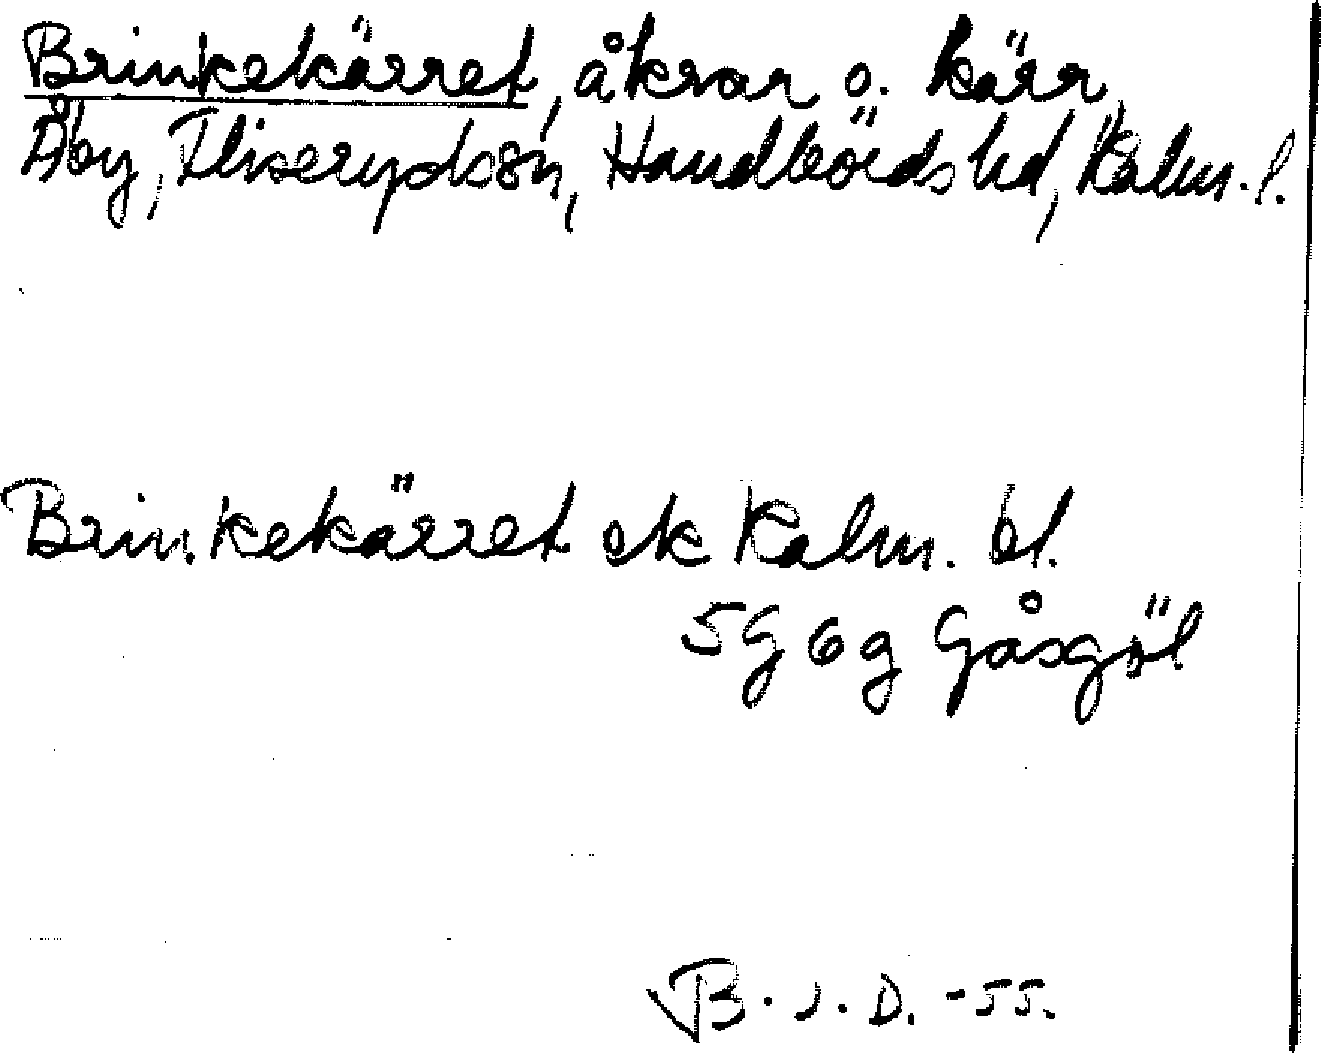 Brinkekärret, åkrar o. kärr,
Åby, Fliserydssn, Handbörds hd, Kalm. l.
Brinkekärret ek Kalm. bl.
5G 6g Gåsgöl
B. J. D. -55.